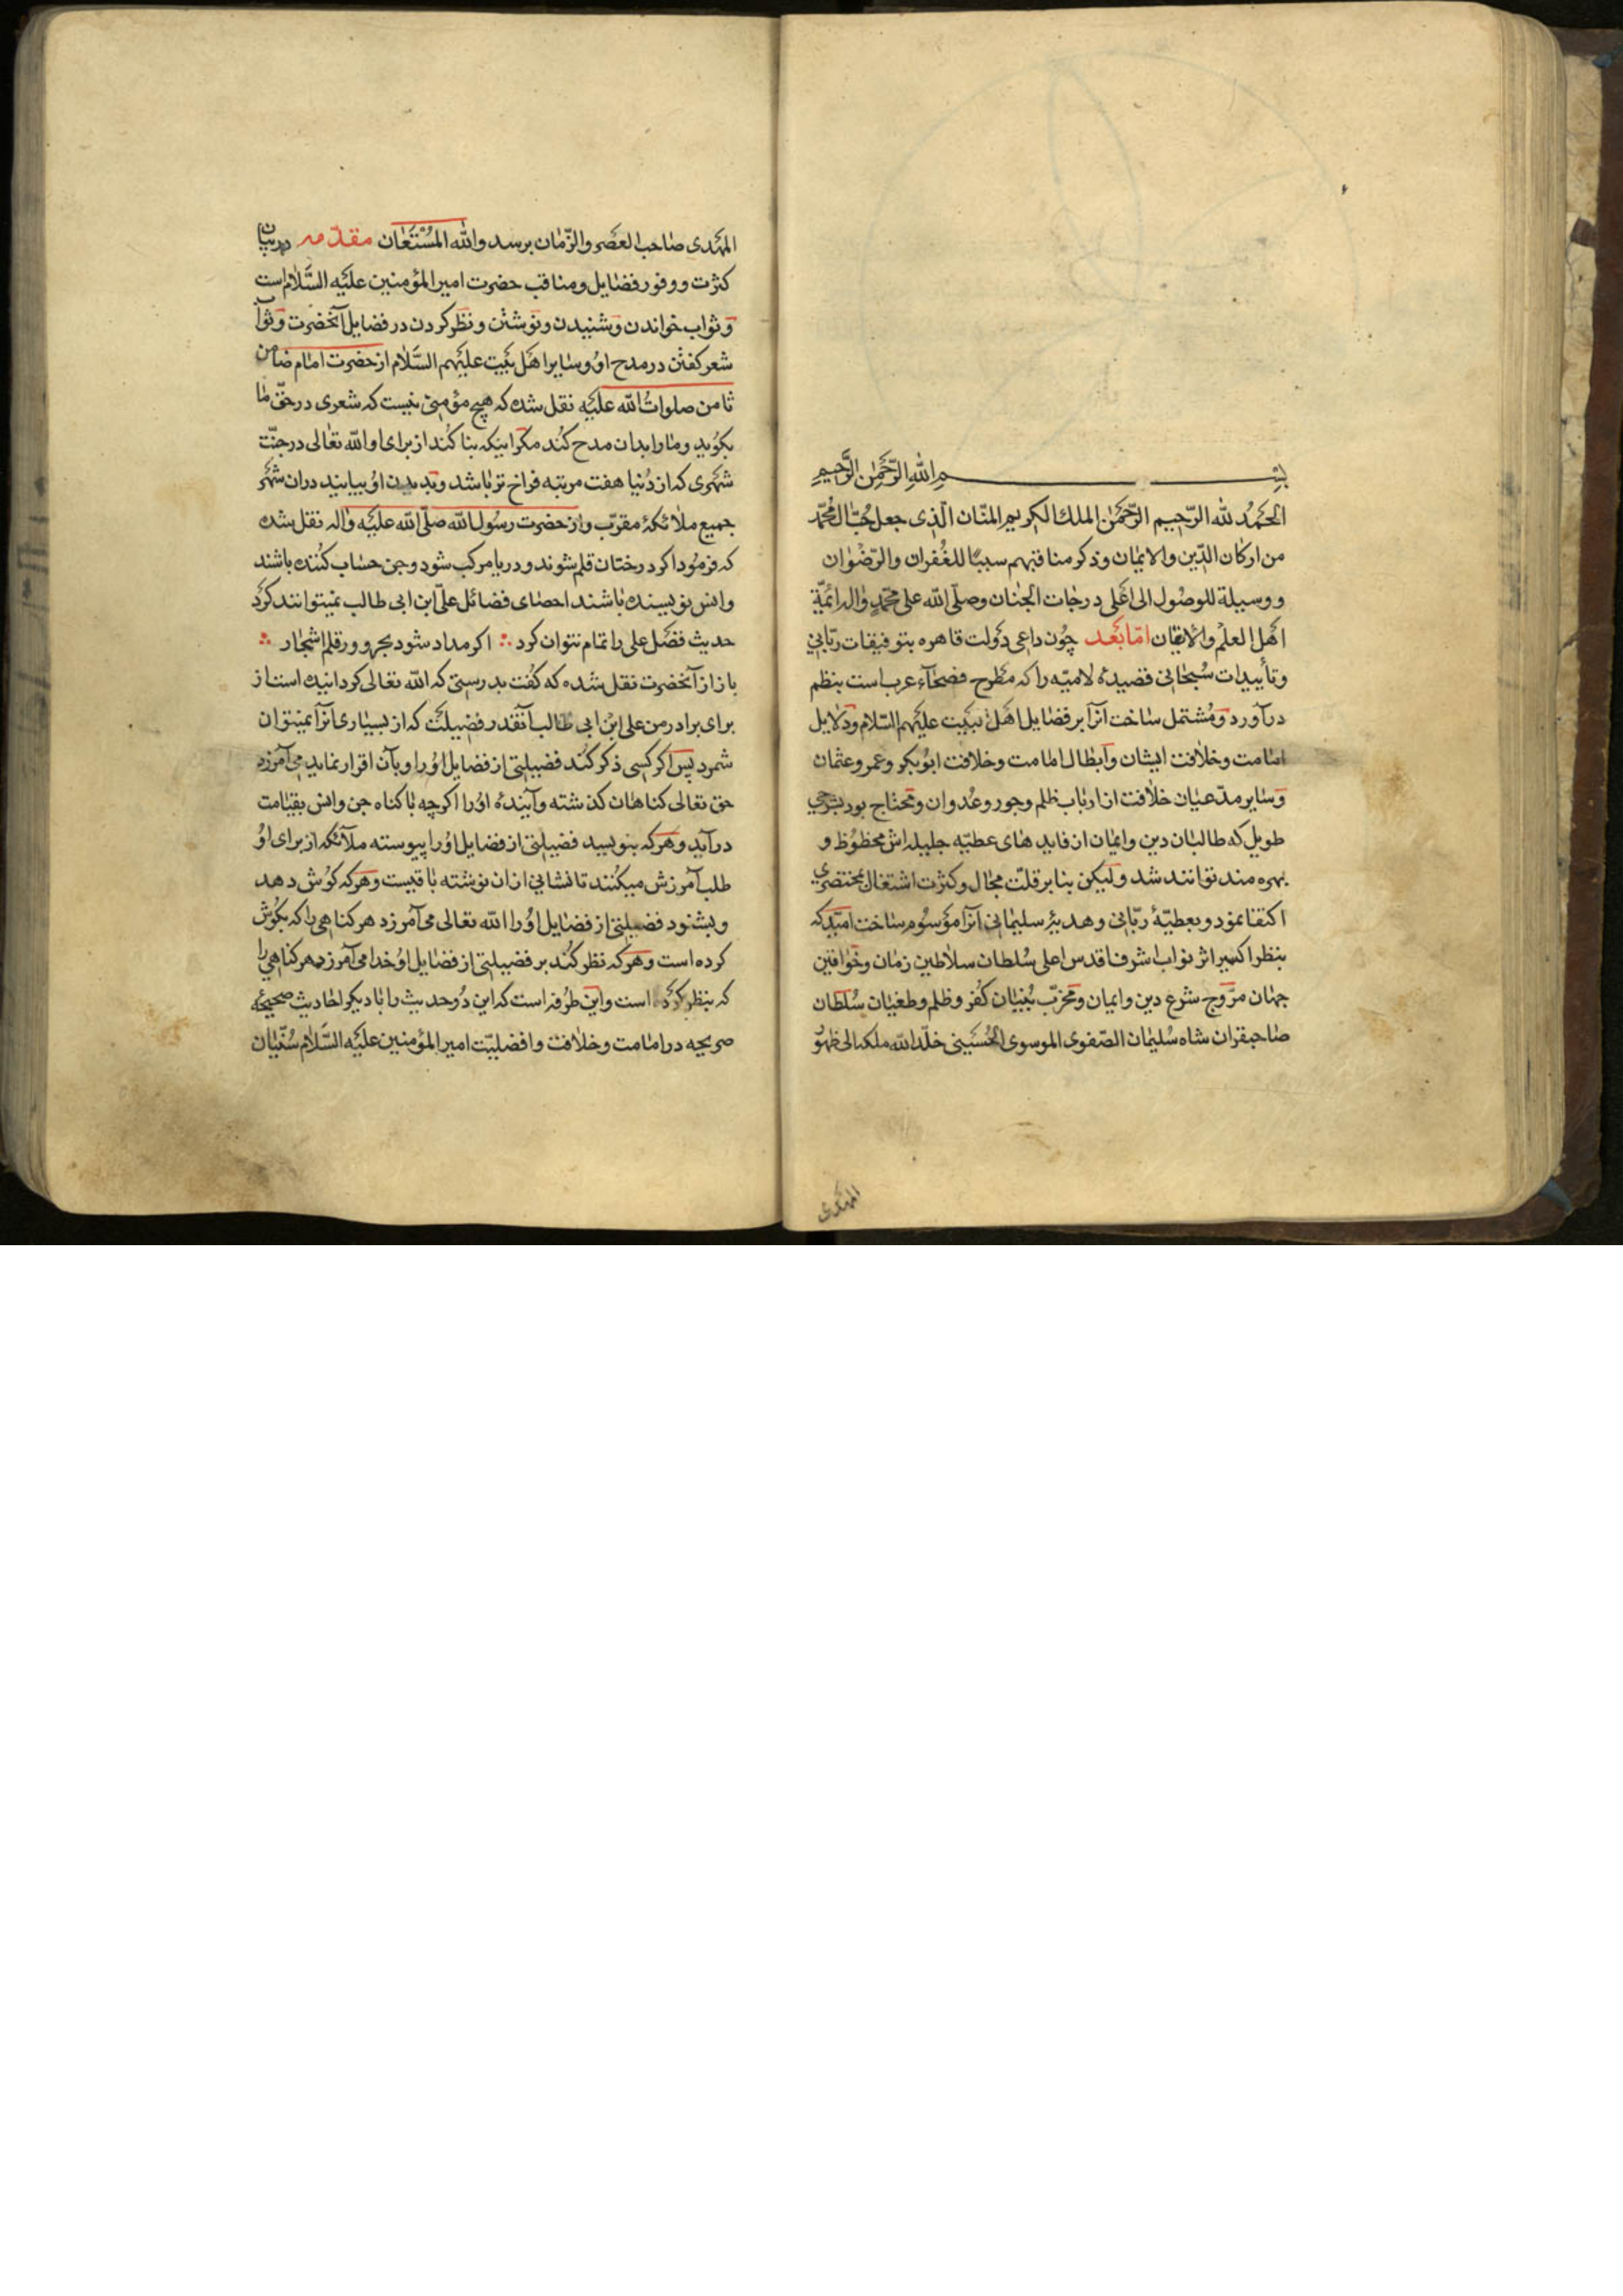 بسم الله الرحمن الرحيم
الحمد لله الرّحيم الرّحمن الملك الكريم المنّان الّذى جعل حبّ ال محمّد
من اركان الدّين والايمان وذكر مناقبهم سببًا للغفران والرّضوان
ووسيلة للوصول الى اعلى درجات الجنان وصلّى الله على محمّد واله ائمّة
اهل العلم والايقان امّا بعد چون داعى دولت قاهره بتوفيقات ربّانى
وتأييدات سبحانى قصيدهٔ لاميّه را كه مطرح فصحاء عرب است بنظم
درآورد ومشتمل ساخت آنرا بر فضايل اهل بيت عليهم السّلام ودلايل
امامت وخلافت ايشان وابطال امامت وخلافت ابوبكر وعمر وعثمان
وساير مدّعيان خلافت از ارباب ظلم وجور وعدوان ومحتاج بود بشرحى
طويل كه طالبان دين وايمان از فايدهاى عطيّه جليله اش محظوظ و
بهره مند توانند شد وليكن بنابر قلّت مجال وكثرت اشتغال بمختصرى
اكتفا نمود وبعطيّهٔ ربّانى وهديهٔ سليمانى آنرا موسوم ساخت اميد كه
بنظر اكسير اثر نواب اشرف اقدس اعلى سلطان سلاطين زمان وخواقين
جهان مروّج شرع دين وايمان ومخرّب بنيان كفر وظلم وطغيان سلطان
صاحبقران شاه سليمان الصّفوى الموسوى الحسينى خلّد الله ملكه الى ظهور
المهدى
المهدى صاحب العصر والزّمان برسد والله المستعان مقدّمه در بيان
كثرت ووفور فضايل ومناقب حضرت امير المؤمنين عليه السّلام است
وثواب خواندن وشنيدن ونوشتن ونظر كردن در فضايل آنحضرت وثواب
شعر كفتن در مدح او وساير اهل بيت عليهم السّلام از حضرت امام ضامن
ثامن صلوات الله عليه نقل شده كه هيچ مؤمنى نيست كه شعرى در حقّ ما
بكويد وما را بدان مدح كند مكر اينكه بنا كند از براى او الله تعالى در جنّت
شهرى كه از دنيا هفت مرتبه فراخ تر باشد وبديدن او بيايند دران شهر
جميع ملائكهٔ مقرّب واز حضرت رسول الله صلّى الله عليه واله نقل شده
كه فرمود اكر درختان قلم شوند ودريا مركب شود وجن حساب كننده باشند
وانس نويسنده باشند احصاى فضائل علىّ ابن ابى طالب نميتوانند كرد
حديث فضل على را تمام نتوان كرد ∴ اكر مداد شود بحر وورق قلم اشجار ∴
باز از آنحضرت نقل شده كه كفت بدرستى كه الله تعالى كردانيده است از
براى برادر من على ابن ابى طالب آنقدر فضيلت كه از بسيارى آنرا نميتوان
شمرد پس اكر كسى ذكر كند فضيلتى از فضايل او را وبآن اقرار نمايد مى آمرزد
حق تعالى كناهان كذشته وآيندهٔ او را اكرچه با كناه جن وانس بقيامت
درآيد وهركه بنويسد فضيلتى از فضايل او را پيوسته ملآئكه از براى او
طلب آمرزش ميكنند تا نشانى ازان نوشته باقيست وهركه كوش دهد
وبشنود فضيلتى از فضايل او را الله تعالى مى آمرزد هر كناهى را كه بكوش
كرده است وهركه نظر كند بر فضيلتى از فضايل او خدا مى آمرزد هر كناهى را
كه بنظر كرده است واين طرفه است كه اين دو حديث را با ديكر احاديث صحيحه
صريحه در امامت وخلافت وافضليّت امير المؤمنين عليه السّلام سنّيان